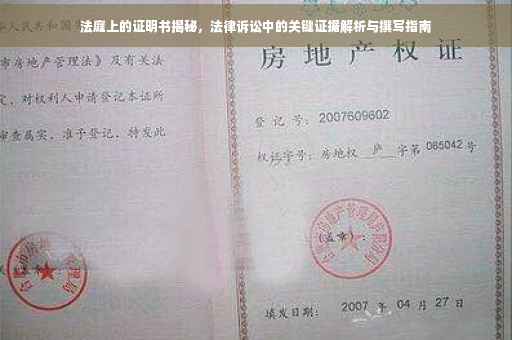 法庭上的证明书揭秘，法律诉讼中的关键证据解析与撰写指南
华人民共和国
市房地产管理法》及有关法
定，对权利人申请登记本证所
审查属实，准予登记，特发此
房地产权证
登记号：2007609602
权证字号：房地权 庐 字第 085042 号
(盖章)：
填发日期： 2007 年 04 月 27 日